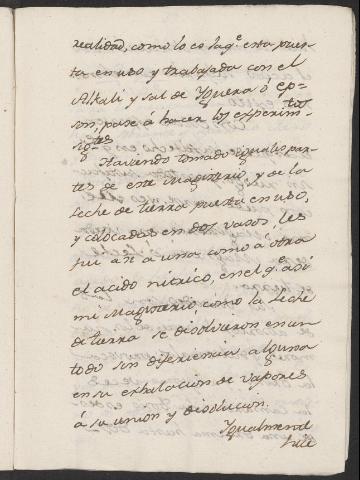 realidad, como lo es la q.e esta pues-
ta en uso y trabajada con el
Alkali y sal de Yguera ó eps-
son, pase á hacer los experim.tos
sig.tes
Haviendo tomado iguales par-
tes de este Magisterio, y de la
Leche de tierra puesta en uso,
y colocadas en dos vasos, les
fui á una como á otra
el acido nitrico, en el q.e asi
mi Magisterio, como la Leche
de tierra se disolvieron en un
todo sin diferiencia alguna
en su exhalacion de vapores
á su union y disolucion.
Ygualmente
hice